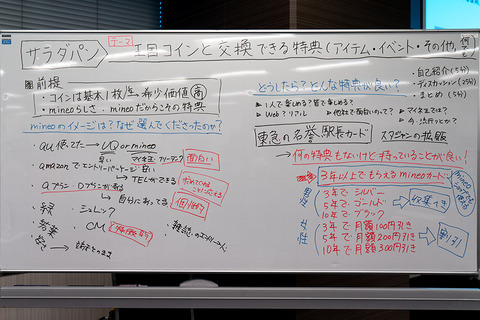 サラダパン
テーマ
王国コインと交換できる特典(アイテム・イベント・その他,何でも)
前提
・コインは基本1枚/年 希少価値 高
・mineoらしさ、mineoだからこその特典
mineoのイメージは?なぜ選んでくださったのか?
・au使えた→UQ or mineo
マイネ王 フリータンク 面白い
・amazonでエントリーパッケージ 安い
→TELができる
・Aプラン・Dプランがある
→自分にあってる
・緑
・シェルエンク
・CM
・安さ
どうしたら?どんな特典が良い?
・自己紹介(5分)
・ディスカッション(25分)
・まとめ(5分)
▶1人で楽しめる?皆で楽しめる?
▶Web?リアル
▶他社で面白いのって?
▶マイネ王では?
▶今、流行りとか?
東急の名誉駅長カード
スタジャンの拡販
→何の特典もないけど持っていることが良い!
3年以上でもらえるmineoカード
男性
3年でシルバー
5年でゴールド
10年でブラック
収集つき
女性
3年で月額100円引き
5年で月額200円引き
10年で月額300円引き
割引